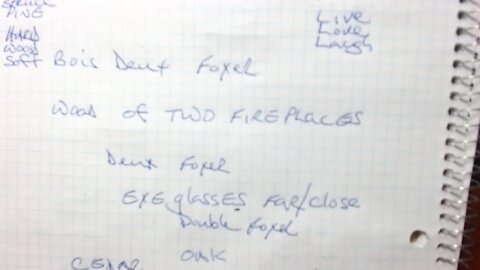 Spruce
Pine
Hard
Wood
Soft
Live
Love
Laugh
Bois Deux Foxer
Wood of TWO FIREPLACES
Deux Foxer
EXEglassES FAR/close
Double Foxer
OAK
CEDAR